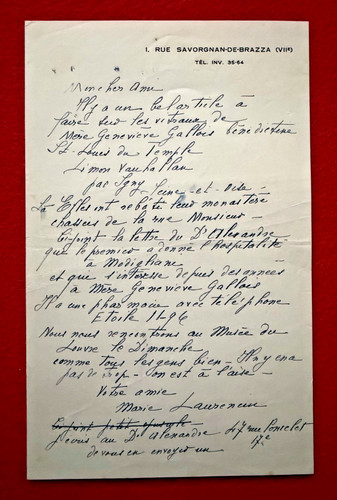 1. RUE SAVORGNAN-DE-BRAZZA (VIIe)
TÉL. INV. 35-54
Mon cher Ami
Il y a un bel article à
faire sur les vitraux de
Mère Geneviève Gallois bénédictine
St-Louis du Temple
Limon Vauhallan
par Igny Seine-et-Oise -
Là Elles ont rebâti leur monastère
chassées de la rue Monsieur -
Ci-joint la lettre du Dr Alexandre
que le premier a donné l'hospitalité
à Modigliani
et qui s'intéresse depuis des années
à Mère Geneviève Gallois
Il a une pharmacie avec téléphone
Etoile 11-96
Nous nous rencontrons au Musée du
Louvre le Dimanche
comme tous les gens bien - Il n'y en a
pas de trop - on est à l'aise -
Votre amie
Marie Laurencin
Ci-joint petit
J'écris au Dr Alexandre 47 rue Poncelet
17e
de vous en envoyer un